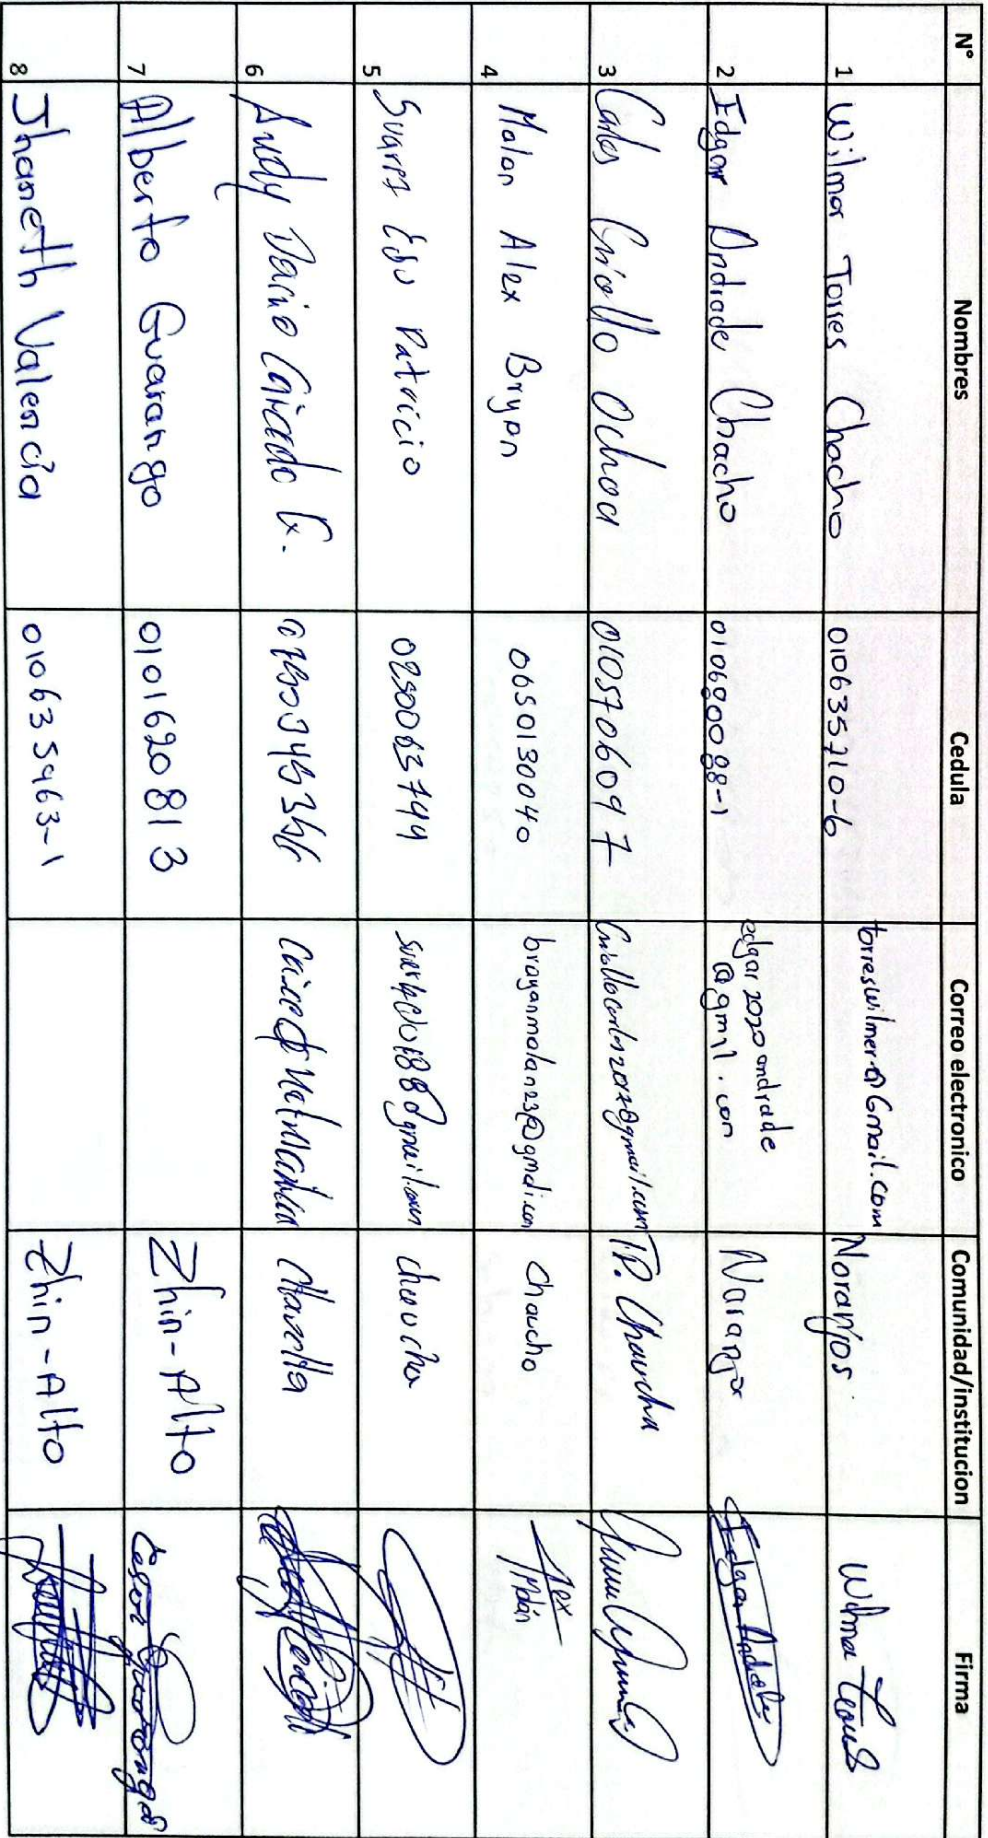 N° Nombres Cedula Correo electronico Comunidad/institucion Firma
1 Wilmer Torres Chacho 010635710-6 torreswilmer@Gmail.com Noranjos. Wilmer
2 Edgar Andrade Chacho 010680088-1 edgar2020andrade
@gmil.com Naranjos Edgar Andrade
3 Carlos Criollo Ochoa 0105706097 Criollocarlos2017@gmail.com TP. Chaucha
4 Malan Alex Bryan 0650130040 brayanmalan23@gmdi.com Chaucho Alex
Malán
5 Suarez Edu Patricio 0250063744 chaucha
6 Andy Dario Caicedo G.
7 Alberto Guarango 0101620813 Zhin-Alto Cesar Guarango
8 Jhaneth Valencia 010635463-1 Zhin-Alto